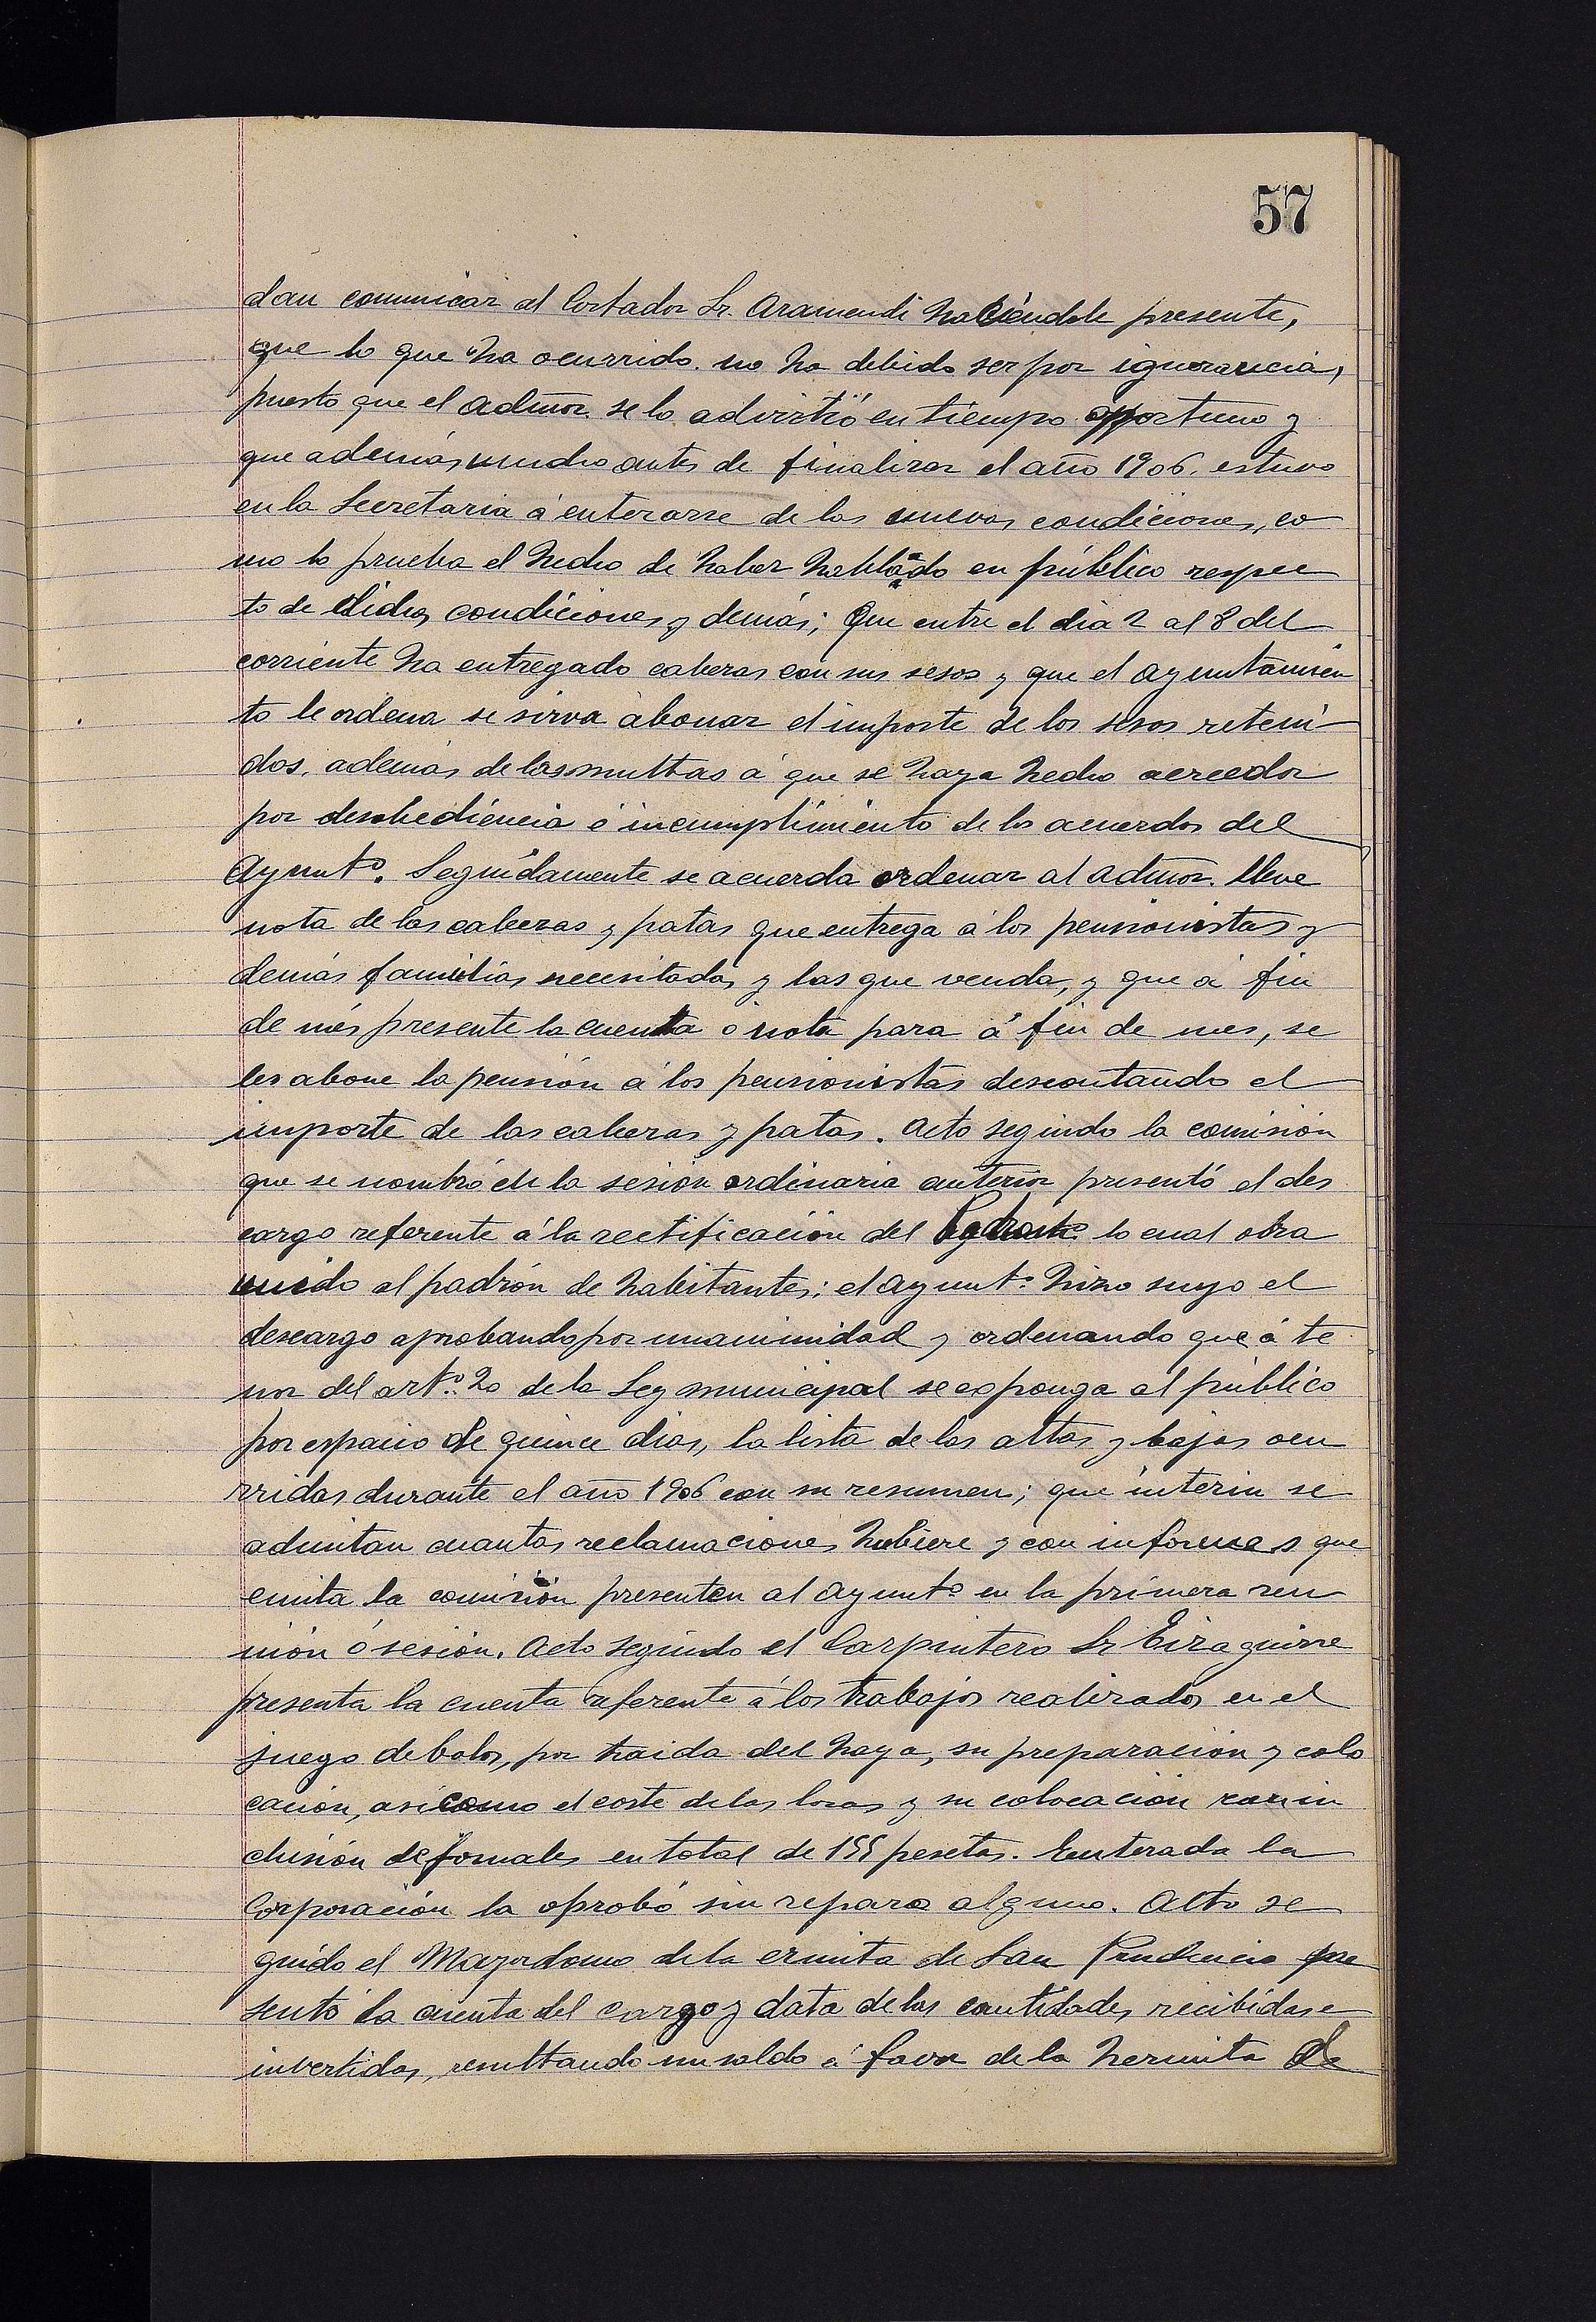 57
dan comunicar al Cortador Sr. Aramendi haciéndole presente,
que lo que ha ocurrido no ha debido ser por ignorancia,
puesto que el admor. se lo advirtió en tiempo oportuno y
que además mucho antes de finalizar el año 1906. estuvo
en la Secretaria á enterarse de las nuevas condiciones, co
mo lo prueba el hecho de haber hablado en público respec
to de dichas condiciones y demás; Que entre el dia 2 al 8 del
corriente ha entregado cabezas con sus sesos y que el ayuntamien
to le ordena se sirva abonar el importe de los sesos reteni
dos, además de las multas á que se haya hecho acreedor
por desobediencia é incumplimiento de los acuerdos del
Ayunt°. Seguidamente se acuerda ordenar al admor. lleve
nota de las cabezas y patas que entrega á los pensionistas y
demás familias necesitadas y las que venda, y que á fin
de més presente la cuenta ó nota para á fin de mes, se
les abone la pensión á los pensionistas descontando el
importe de las cabezas y patas. Acto seguido la comisión
que se nombró de la sesión ordinaria anterior presentó el des
cargo referente á la rectificación del lo cual obra
unido al padrón de habitantes; el ayunt°. hizo suyo el
descargo aprobando por unanimidad y ordenando que á te
nor del art°. 20 de la Ley municipal se esponga al público
por espacio de quince dias, la lista de las altas y bajas ocu
rridas durante el año 1906 con su resumen; que interin se
admitan cuantas reclamaciones hubiere y con informes que
emita la comisión presenten al ayunt° en la primera reu
nión ó sesión. Acto seguido el Carpintero Sr Eizaguirre
presenta la cuenta referente á los trabajos realizados en el
juego de bolos, por traida del haya, su preparación y colo
cación, asi como el coste de las losas y su colocación con in
clusión de jornales en total de 155 pesetas. Enterada la
Corporación la aprobó sin reparo alguno. Acto se
guido el Mayordomo de la ermita de San Prudencio pre
sentó la cuenta del cargo y data de las cantidades recibidas e
invertidas, resultando un saldo á favor de la hermita de